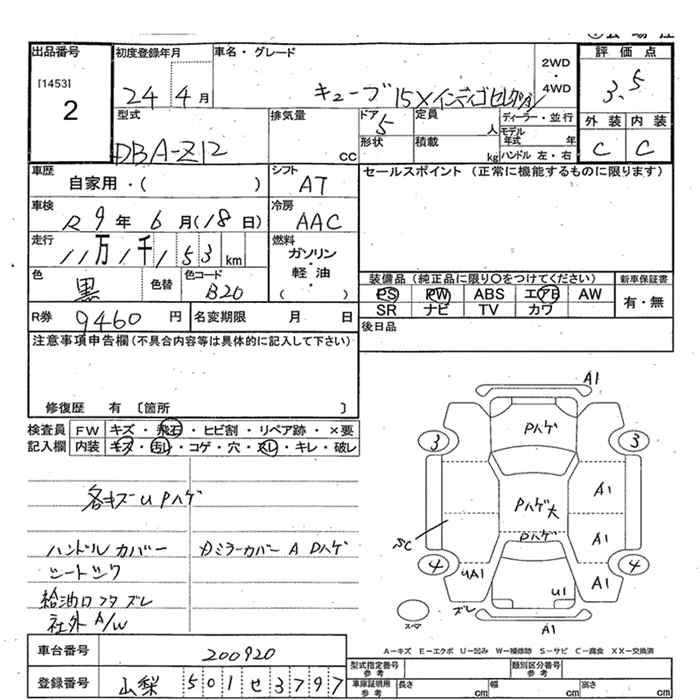 出品番号
[1453]
2
初度登録年月
24年 4月
車名・グレード
キューブ 15X インディゴセレクション
2WD
・
4WD
評価点
3.5
外装 内装
C C
型式
DBA-Z12
排気量
cc
ドア
5
形状
定員
人
積載
kg
ディーラー・並行
モデル年式 年
ハンドル 左・右
車歴
自家用・( )
シフト
AT
車検
R9年6月(18日)
冷房
AAC
走行
11万1千153km
燃料
ガソリン
・
軽油
・
( )
色
黒
色替
色コード
B20
R券 9460円
名変期限 月 日
セールスポイント (正常に機能するものに限ります)
装備品(純正品に限り〇をつけてください)
PS PW ABS エアB AW
SR ナビ TV カワ
新車保証書
有・無
後日品
注意事項申告欄(不具合内容等は具体的に記入して下さい)
修復歴 有 〔箇所 〕
検査員
記入欄
FW キズ・飛石・ヒビ割・リペア跡・×要
内装 キズ・汚レ・コゲ・穴・スレ・キレ・破レ
各キズ U Pハゲ
ハンドルカバー
シートシワ
給油口フタズレ
社外 A/W
ドミラーカバー A Pハゲ
A1
Pハゲ
3 3
A1
Pハゲ大
Pハゲ
SC
A1
4 4
UA1
U1
A1
ズレ
スペア
A1
A-キズ E-エクボ U-凹み W-補修跡 S-サビ C-腐食 XX-交換済
車台番号
200920
登録番号
山梨 501 せ 3797
型式指定番号
参考
類別区分番号
参考
車庫証明用
参考
長さ cm
幅 cm
高さ cm